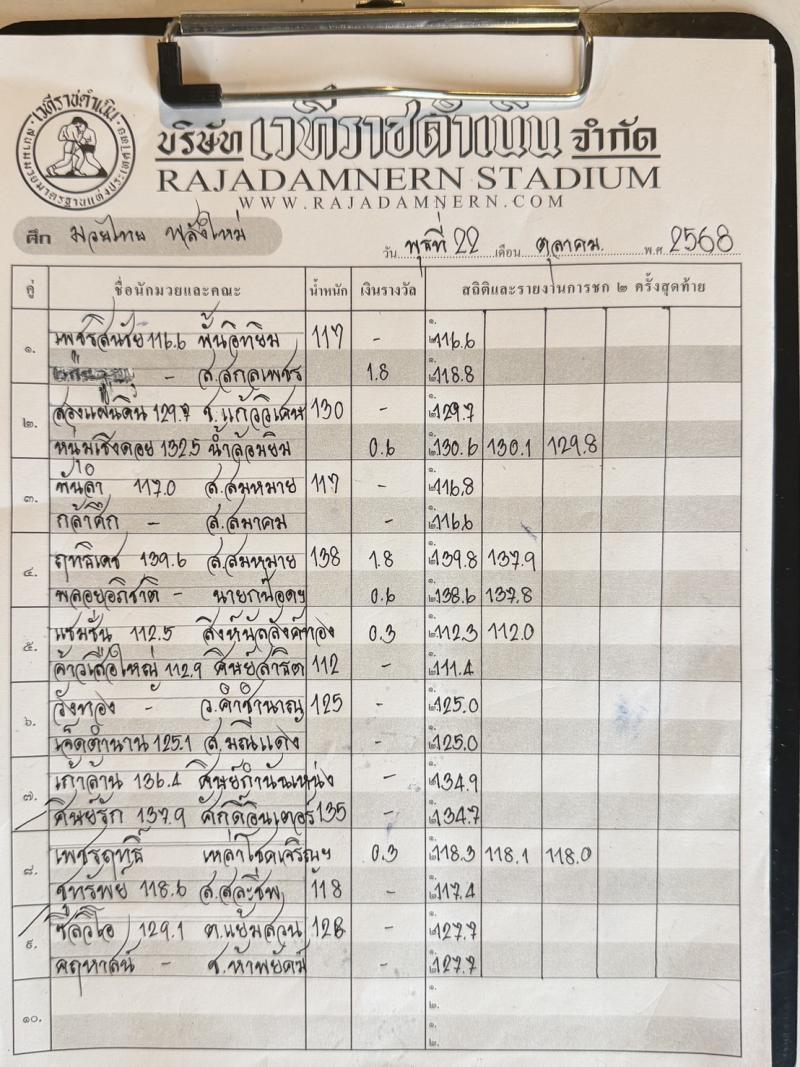 เวทีราชดำเนิน
บริษัท เวทีราชดำเนิน จำกัด
RAJADAMNERN STADIUM
WWW.RAJADAMNERN.COM
ศึก มวยไทย พลังใหม่
วัน พุธที่ 22 เดือน ตุลาคม. พ.ศ 2568
คู่ ชื่อนักมวยและคณะ น้ำหนัก เงินรางวัล สถิติและรายงานการชก ๒ ครั้งสุดท้าย
๑. เพชรสีนชัย 116.6 พั้นอิทยิม 117 - ๑. ๒. 116.6
- ส.สกลเพชร 1.8 ๑. ๒. 118.8
๒. สองแผ่นดิน 129.7 ช.แก้ววิเศษ 130 - ๑. ๒. 129.7
หนุ่มเชิงดอย 132.5 น้ำล้อมยิม 0.6 ๑. ๒. 130.6 130.1 129.8
๓. พันลำ 117.0 ส.สมหมาย 117 - ๑. ๒. 116.8
กล้าศึก - ส.สมาคม - ๑. ๒. 116.6
๔. ฤทธิเดช 139.6 ส.สมหมาย 138 1.8 ๑. ๒. 139.8 137.9
พลอยอภิชาติ - นายกน้อดฯ 0.6 ๑. ๒. 138.6 137.8
๕. แชมชื่น 112.5 สิงห์นัลลังค์ทอง 0.3 ๑. ๒. 112.3 112.0
ค้าวเสือใหญ่ 112.9 ศิษย์สาธิต 112 - ๑. ๒. 111.4
๖. วังทอง - ว.คำชำนาญ 125 - ๑. ๒. 125.0
เจ็ดตำนาน 125.1 ส.มณีแดง - ๑. ๒. 125.0
๗. เก้าล้าน 136.4 ศิษย์กำนันเหน่ง - ๑. ๒. 134.9
ศิษย์รัก 137.9 ศักดิ์อินเตอร์ 135 - ๑. ๒. 134.7
๘. เพชรฤทธิ์ เหล่าโชคเจริญฯ 0.3 ๑. ๒. 118.3 118.1 118.0
ชูทรัพย์ 118.6 ส.สละชีพ 118 - ๑. ๒. 117.4
๙. ซิลวิโอ 129.1 ต.แย้มสวน 128 - ๑. ๒. 127.7
คฤหาสน์ - ช.ห้าพยัคฆ์ - ๑. ๒. 127.7
๑๐. ๑.
๒.
๑.
๒.